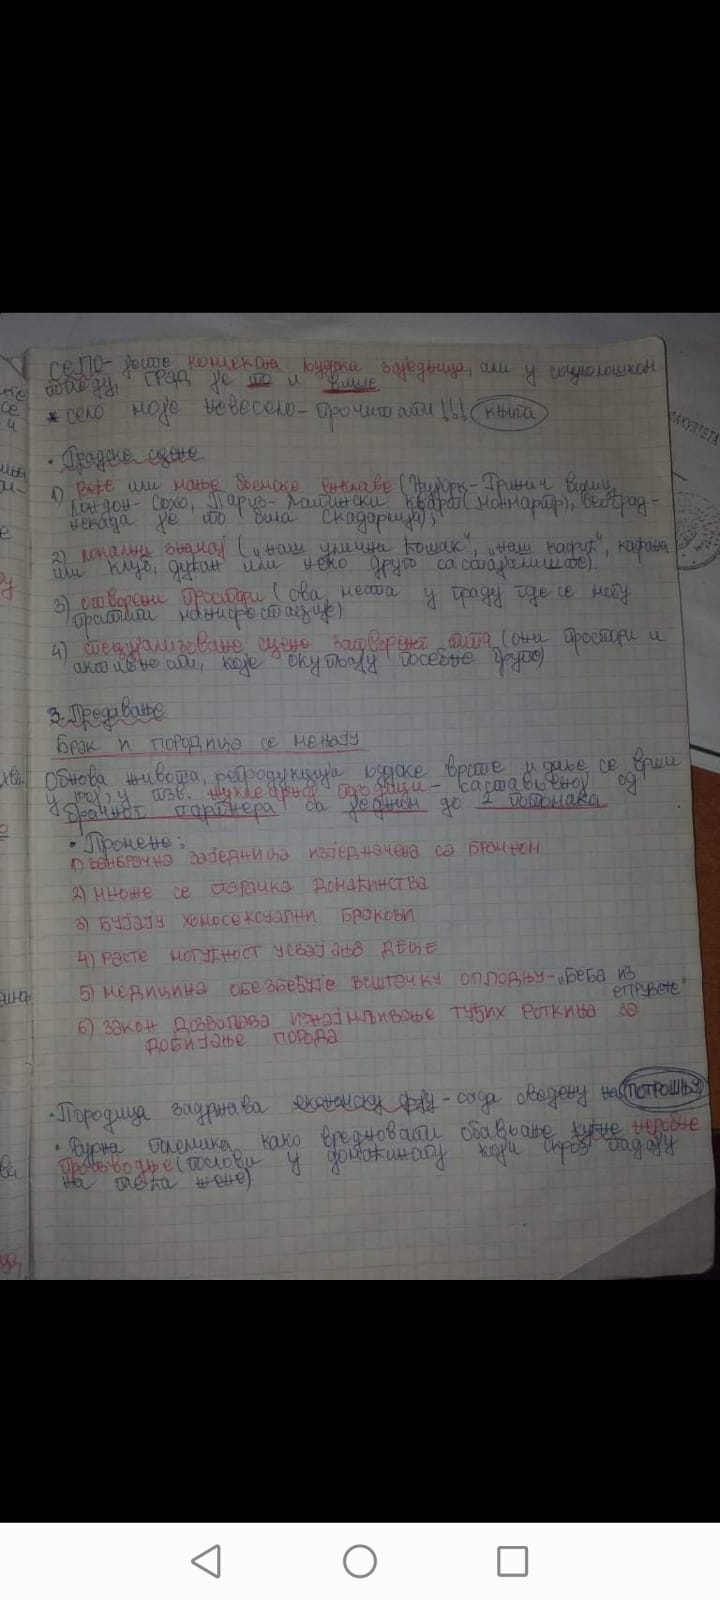 СЕЛО- јесте комплексна људска заједница, али у социолошком
погледу, ГРАД је то и више
* село моје невесело- прочитати!!! књига
ФАКУЛТЕТА
• Градске сцене
1) Веће или мање боемске енклаве (Њујорк- Гринич вилиџ,
Лондон- Сохо, Париз- Латински кварт (монмартр), Београд-
некада је то била Скадарлија);
2) локални значај („наш улични ћошак", „наш кафић", кафана
или клуб, дућан или неко друго састајалиште)
3) отворени простори (ова места у граду где се могу
пратити манифестације)
4) специјализоване сцене затвореног типа (они простори и
које окупљају посебне групе)
3. Предавање
БРАК И ПОРОДИЦА СЕ МЕЊАЈУ
Обнова живота, репродукција људске врсте и даље се врши
у тзв. нуклеарној породици- састављеној од
брачног партнера са једним до 2 потомака
• Промене:
1) ВАНБРАЧНА ЗАЈЕДНИЦА ИЗЈЕДНАЧЕНА СА БРАЧНОМ
2) МНОЖЕ СЕ СТАРАЧКА ДОМАЋИНСТВА
3) БУЈАЈУ ХОМОСЕКСУАЛНИ БРАКОВИ
4) РАСТЕ МОГУЋНОСТ УСВАЈАЊА ДЕЦЕ
5) МЕДИЦИНА ОБЕЗБЕЂУЈЕ ВЕШТАЧКУ ОПЛОДЊУ-„БЕБА ИЗ
ЕПРУВЕТЕ"
6) ЗАКОН ДОЗВОЉАВА ИЗНАЈМЉИВАЊЕ ТУЂИХ РОТКИЊА ЗА
ДОБИЈАЊЕ ПОРОДА
• Породица задржава економску ф-ју- сада сведену на ПОТРОШЊУ
• Бурна полемика како вредновати обављање кућне
производње (послови у домаћинству који скроз падају
на плећа жене)